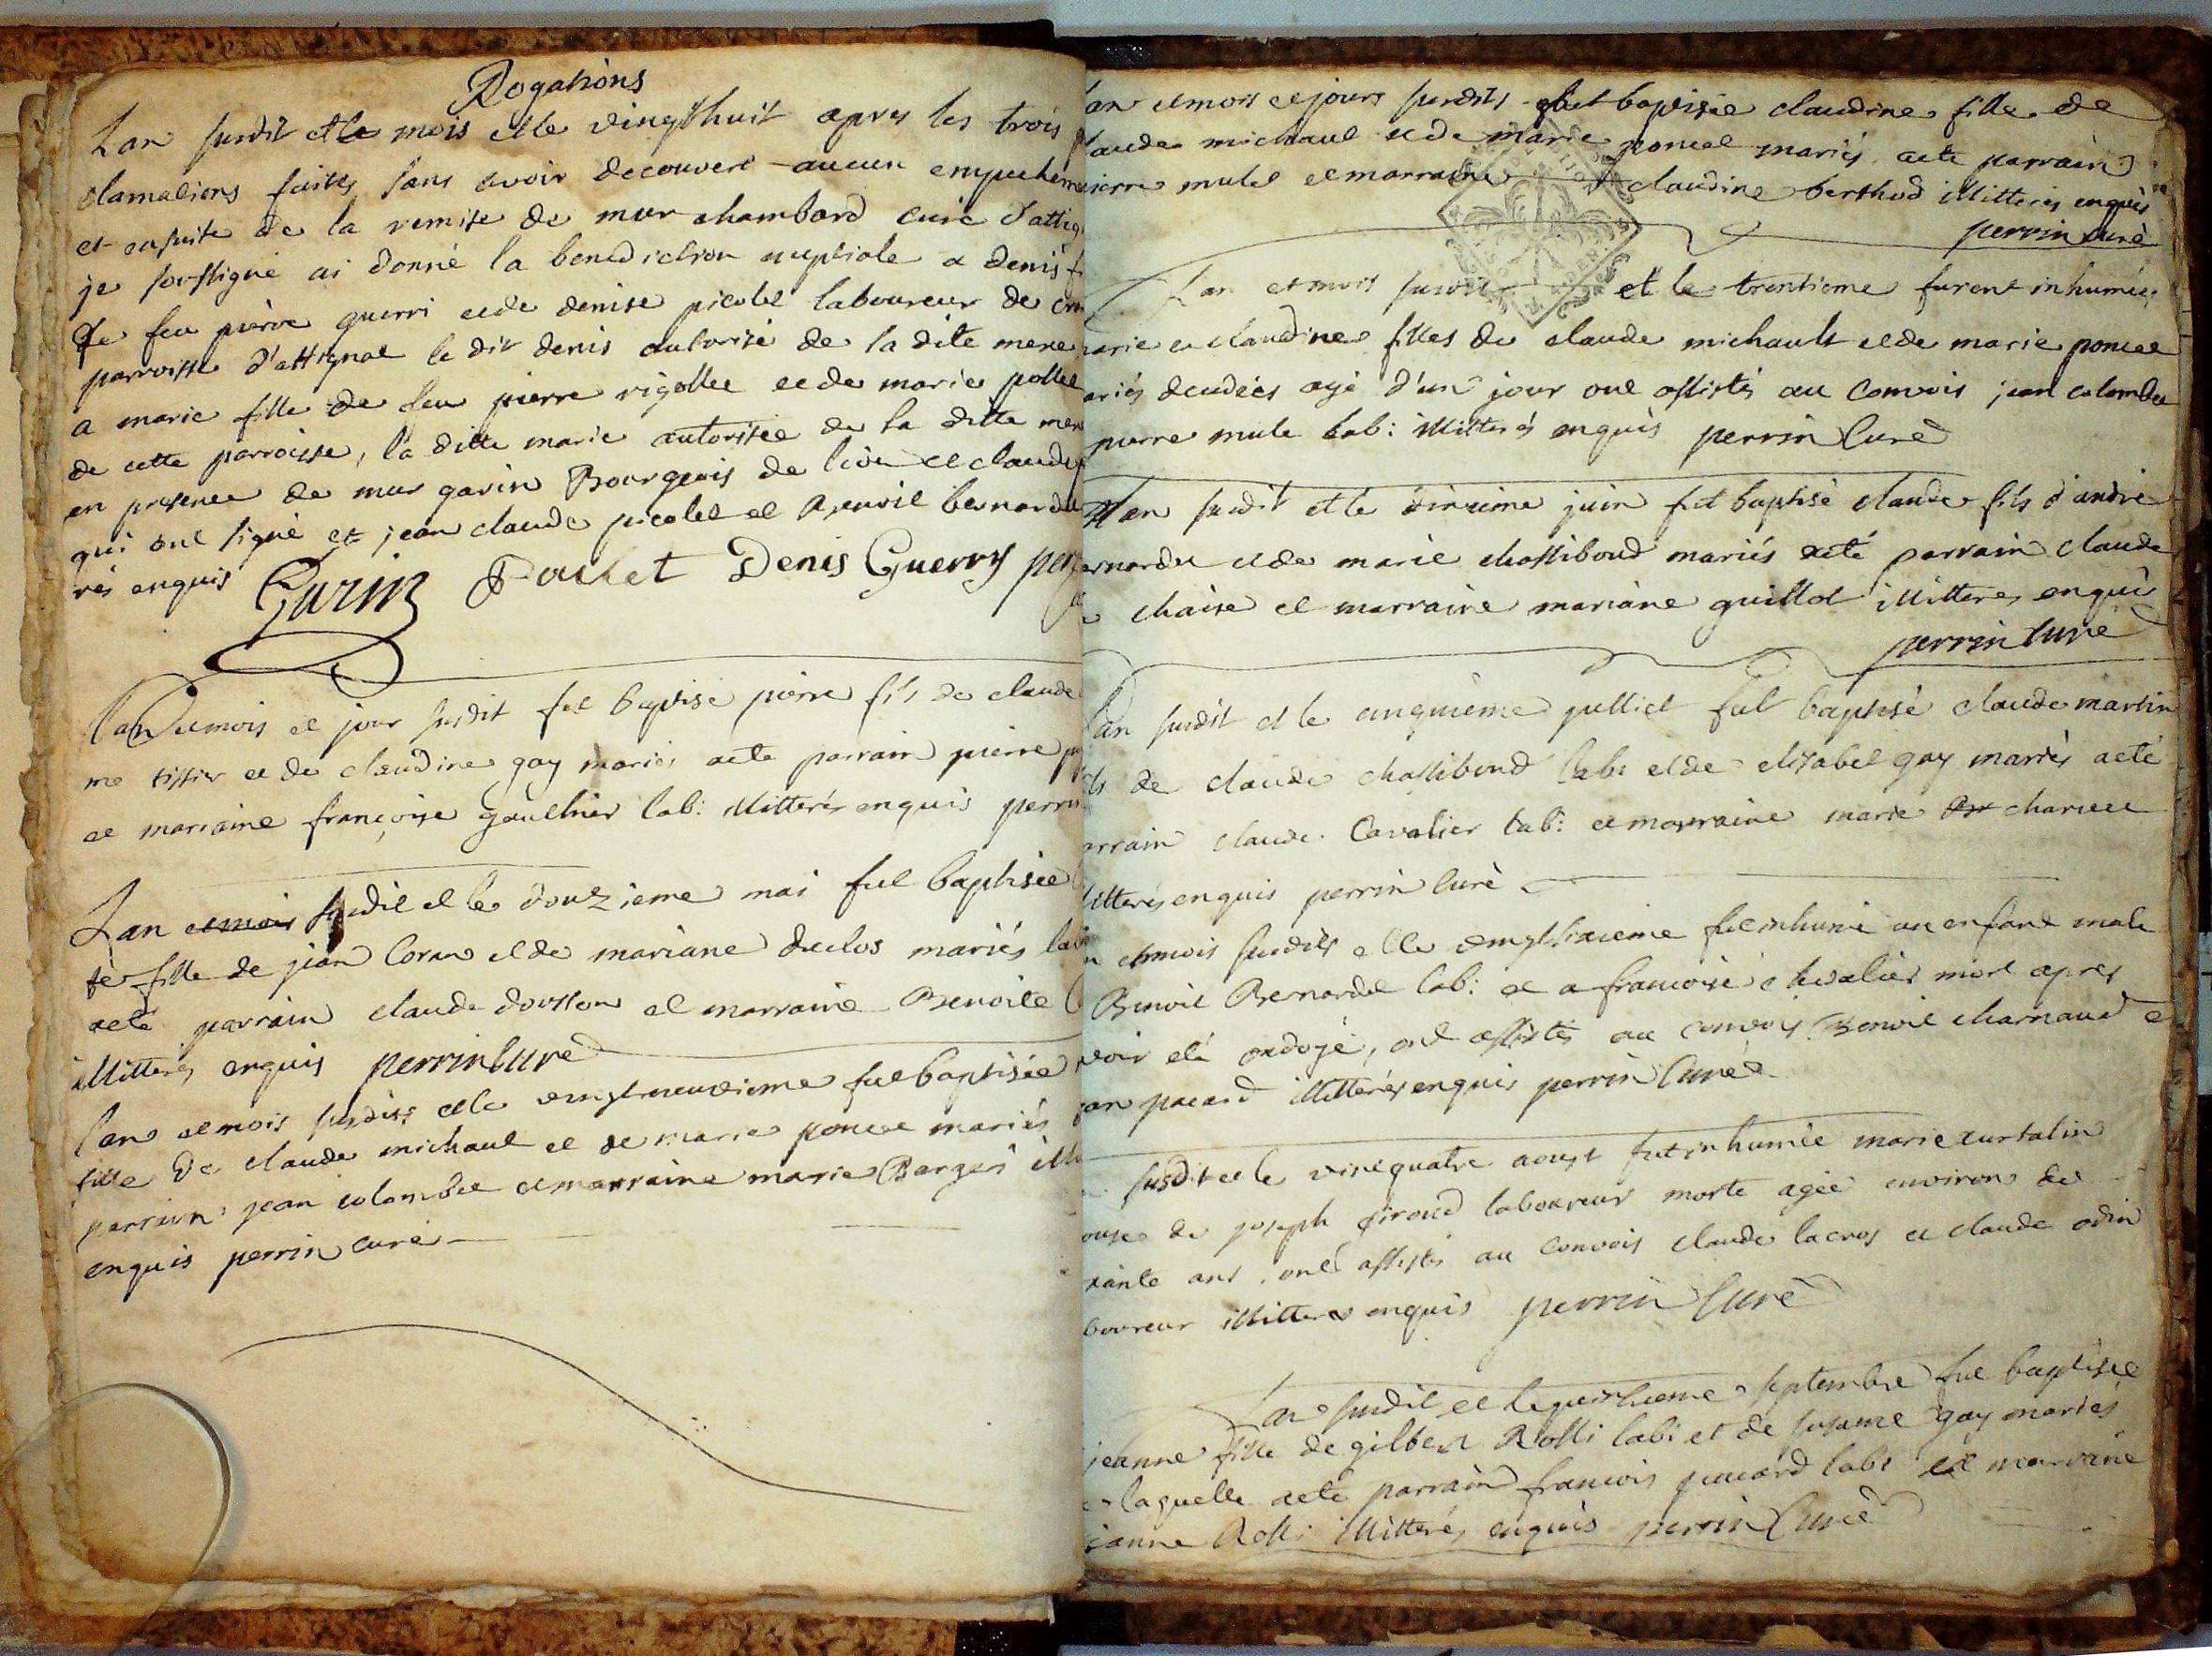 Rogations
Lan susdit et le mois et le vingthuit apres les trois
clamations faites sans avoir decouvert aucun empechem
et ensuite de la remise de mur chambard curé d'attig
je soussigné ai donné la benediction nuptiale a denis fi
de feu pierre guerri et de denise picolet laboureur de
parroisse d'attignat le dit denis autorisé de la dite mere
a marie fille de feu pierre rigollet et de marie pollet
de cette parroisse, la ditte marie autorisée de la ditte mere
en presence de mur garin Bourgeois de et claude
qui ont signé et jean claude picolet et Benoit bernardet
rés enquis Garin Denis Guerry per
lan et mois et jour susdit fut baptisé pierre fils de claude
me tissier et de claudine gay mariés a eté parrain pierre
et marraine françoise gauthier lab: illitterés enquis perrin
Lan et mois susdit et le douzieme mai fut baptisée
te fille de jean Coran et de mariane duclos mariés lab
a eté parrain claude et marraine Benoite
illitterés enquis perrin curé
lan et mois susdits et le vingtneuvieme fut baptisée
fille de claude michaut et de marie poncet mariés
parrain jean colombet et marraine marie Berger ill
enquis perrin curé
lan et mois et jours susdits fut baptisée claudine fille de
laude michaut et de marie poncet mariés a eté parrain
pierre mulet et marraine claudine berthod illitterés enquis
perrin curé
Lan et mois susdit et le trentieme furent inhumées
marie et claudine filles de claude michault et de marie poncet
ariés decedées agé d'un jour ont assistés au convois jean colombet
pierre mulet lab: illitterés enquis perrin Curé
Lan susdit et le juin fut baptisé claude fils d'andré
ernardet et de marie chassiboud mariés a eté parrain claude
chaise et marraine mariane guillot illitterés enquis
perrin Curé
lan susdit et le cinquième julliet fut baptisé claude martin
ils de claude chassiboud lab: et de elisabet gay mariés a eté
arrain claude Cavalier lab: et marraine marie charvet
illitterés enquis perrin Curé
n et mois susdits et le vingtsixieme fut inhumé un enfant male
Benoit Bernardet lab: et a francoise chevalier mort apres
avoir eté ondoyé, ont assistés au convois Benoit charnaud e
ean pacard illitterés enquis perrin Curé
susdit et le vintquatre aoust fut inhumée marie curtalin
ouse de joseph giroud laboureur morte agée environ de
xante ans, ont assistés au convois claude lacros et claude odin
boureur illitterés enquis perrin Curé
Lan susdit et le septembre fut baptisée
jeanne fille de gilbert Rolli lab: et de susanne gay mariés
laquelle a eté parrain francois pacard lab: et marraine
jeanne Rolli illitterés enquis perrin Curé